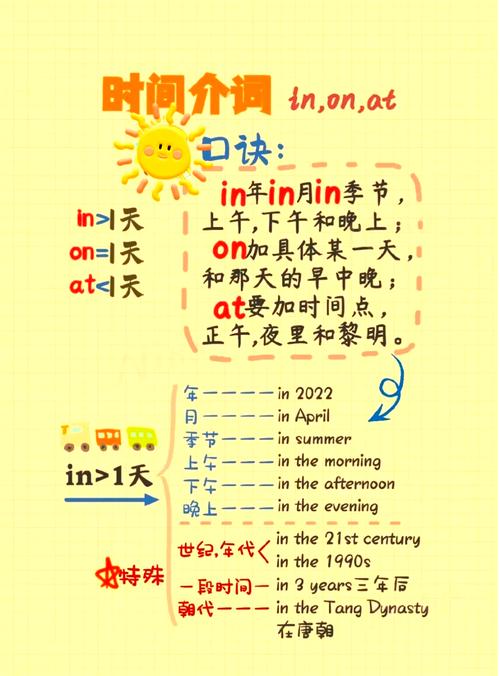 时间介词 in,on,at
口诀:
in>1天
on=1天
at<1天
in年in月in季节，
上午,下午和晚上；
on加具体某一天，
和那天的早中晚；
at要加时间点，
正午,夜里和黎明。
in>1天
年————in 2022
月————in April
季节———in summer
上午———in the morning
下午———in the afternoon
晚上———in the evening
☆特殊
世纪,年代<
in the 21st century
in the 1990s
一段时间—in 3 years三年后
朝代———in the Tang Dynasty
在唐朝